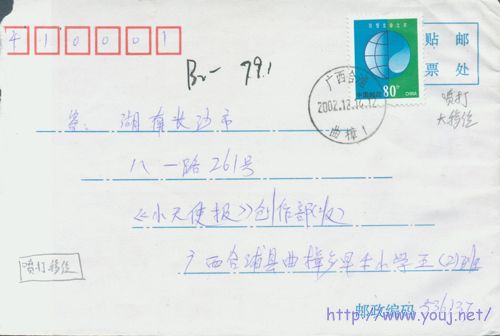 410001
Br- 791
保护生命之水
中国邮政
80分
CHINA
贴邮
票处
广西合浦
2002.12.14.12
曲樟1
喷打
大移位
寄: 湖南长沙市
八一路261号
《小天使报》创作部(收)
广西合浦县曲樟乡早禾小学五(2)班
喷打移位
邮政编码 536137
http://www.youj.net/